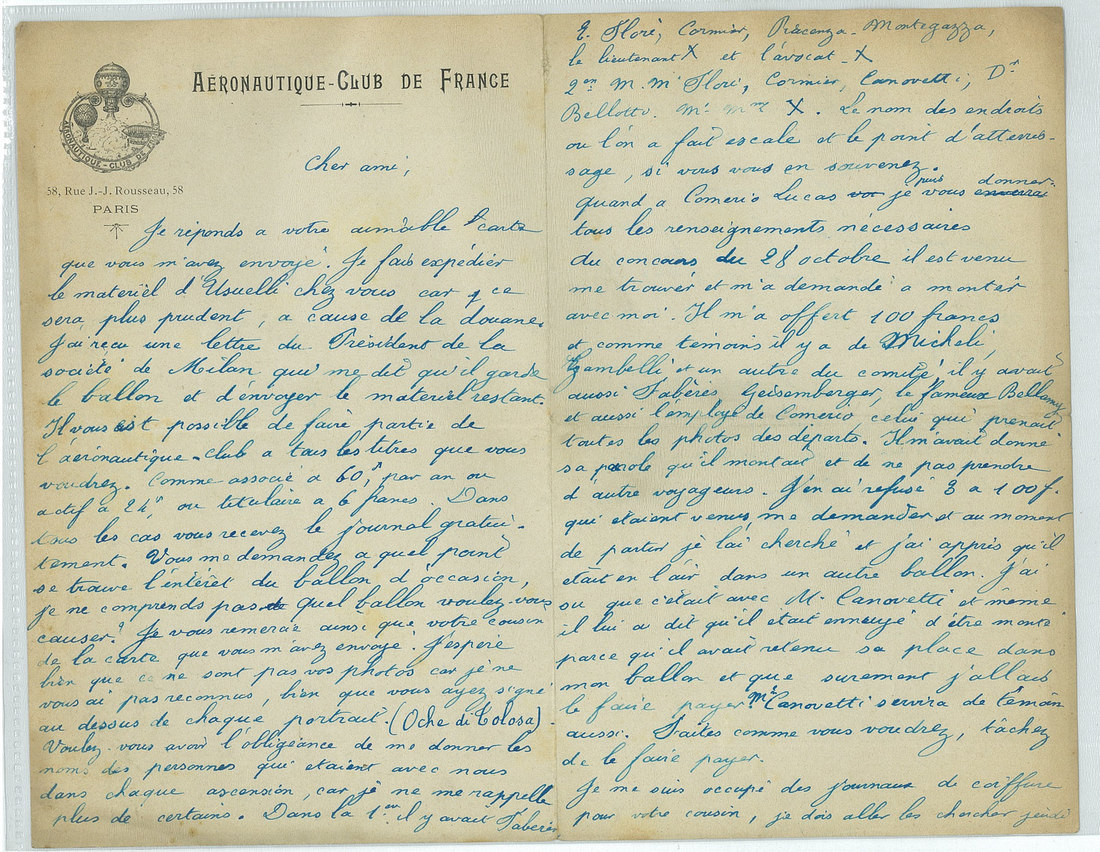 AÉRONAUTIQUE-CLUB DE FRANCE
AÉRONAUTIQUE-CLUB DE FRANCE
58, Rue J.-J. Rousseau, 58
PARIS
Cher ami,
Je réponds a votre aimable carte
que vous m'avez envoyé. Je fais expédier
le materiel d'Usuelli chez vous car ce
sera plus prudent, a cause de la douane.
J'ai reçu une lettre du Président de la
société de Milan qui me dit qu'il garde
le ballon et d'envoyer le materiel restant.
Il vous est possible de faire partie de
l'aéronautique-club a tous les titres que vous
voudrez. Comme associé a 60f par an ou
actif a 24f, ou titulaire a 6 francs. Dans
tous les cas vous recevez le journal gratui-
tement. Vous me demandez a quel point
se trouve l'intérêt du ballon d'occasion,
je ne comprends pas quel ballon voulez-vous
causer? Je vous remercie ainsi que votre cousin
de la carte que vous m'avez envoyé. J'espère
bien que ce ne sont pas vos photos car je ne
vous ai pas reconnus, bien que vous ayez signé
au dessus de chaque portrait. (Oche di Tolosa).
Voulez-vous avoir l'obligeance de me donner les
noms des personnes qui etaient avec nous
dans chaque ascension, car je ne me rappelle
plus de certains. Dans la 1ère il y avait Taberès
E. Floré, Cormier, Piacenza-Montegazza,
le lieutenant X et l'avocat-X
2en M. Me Floré, Cormier, Canovetti, Dr
Bellotto. Mr Mme X. Le nom des endroits
ou l'on a fait escale et le point d'atterris-
sage, si vous vous en souvenez.
quand a Comerio Lucas je puis vous donner
tous les renseignements nécessaires
du concours du 28 octobre il est venu
me trouver et m'a demandé a monter
avec moi. Il m'a offert 100 francs
et comme témoins il y a de Micheli,
Gambelli et un autre du comité, il y avait
aussi Fabèris Geisemberger, le fameux Bellany
et aussi l'employé de Comerio celui qui prenait
toutes les photos des départs. Il m'avait donné
sa parole qu'il montait et de ne pas prendre
d'autre voyageurs. J'en ai refusé 3 a 100f.
qui etaient venus me demander et au moment
de partir je l'ai cherché et j'ai appris qu'il
etait en l'air dans un autre ballon. J'ai
su que c'etait avec M. Canovetti et même
il lui a dit qu'il etait ennuyé d'être monté
parce qu'il avait retenu sa place dans
mon ballon et que surement j'allais
le faire payer. Mr Canovetti servira de témoin
aussi. Faites comme vous voudrez, tâchez
de le faire payer.
Je me suis occupé des journaux de coiffure
pour votre cousin, je dois aller les chercher jeudi